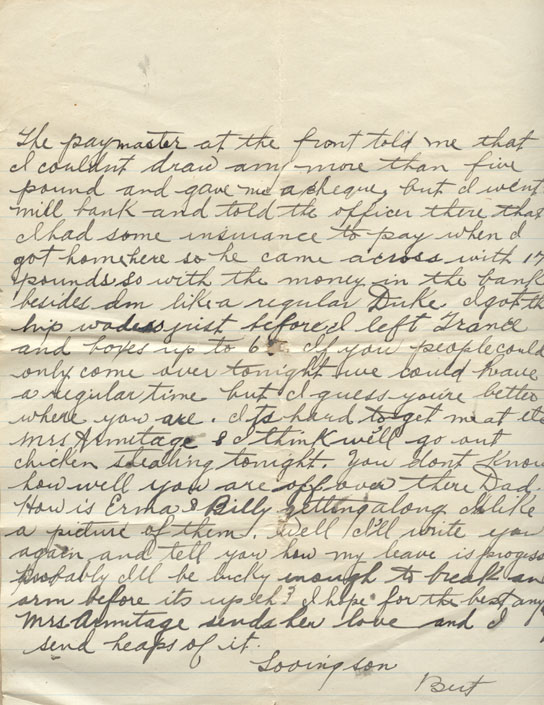 The paymaster at the front told me that
I couldnt draw any more than five
pound and gave me a cheque, but I went
mill bank and told the officer there that
I had some insurance to pay when I
got home here so he came across with 17
pounds so with the money in the bank
besides Im like a regular Duke. I got the
hip waders just before I left France
and boxes up to 6
If you people could
only come over tonight we could have
a regular time but I guess you're better
where you are. Its hard to get meat etc
Mrs Armitage & I think will go out
chicken stealing tonight. You dont know
how well you are off over there Dad.
How is Erma & Billy getting along Id like
a picture of them. Well I'll write you
again and tell you how my leave is progress
Probably I'll be lucky enough to break an
arm before its up eh? I hope for the best, any
Mrs Armitage sends her love and I
send heaps of it.
Loving son
Bert